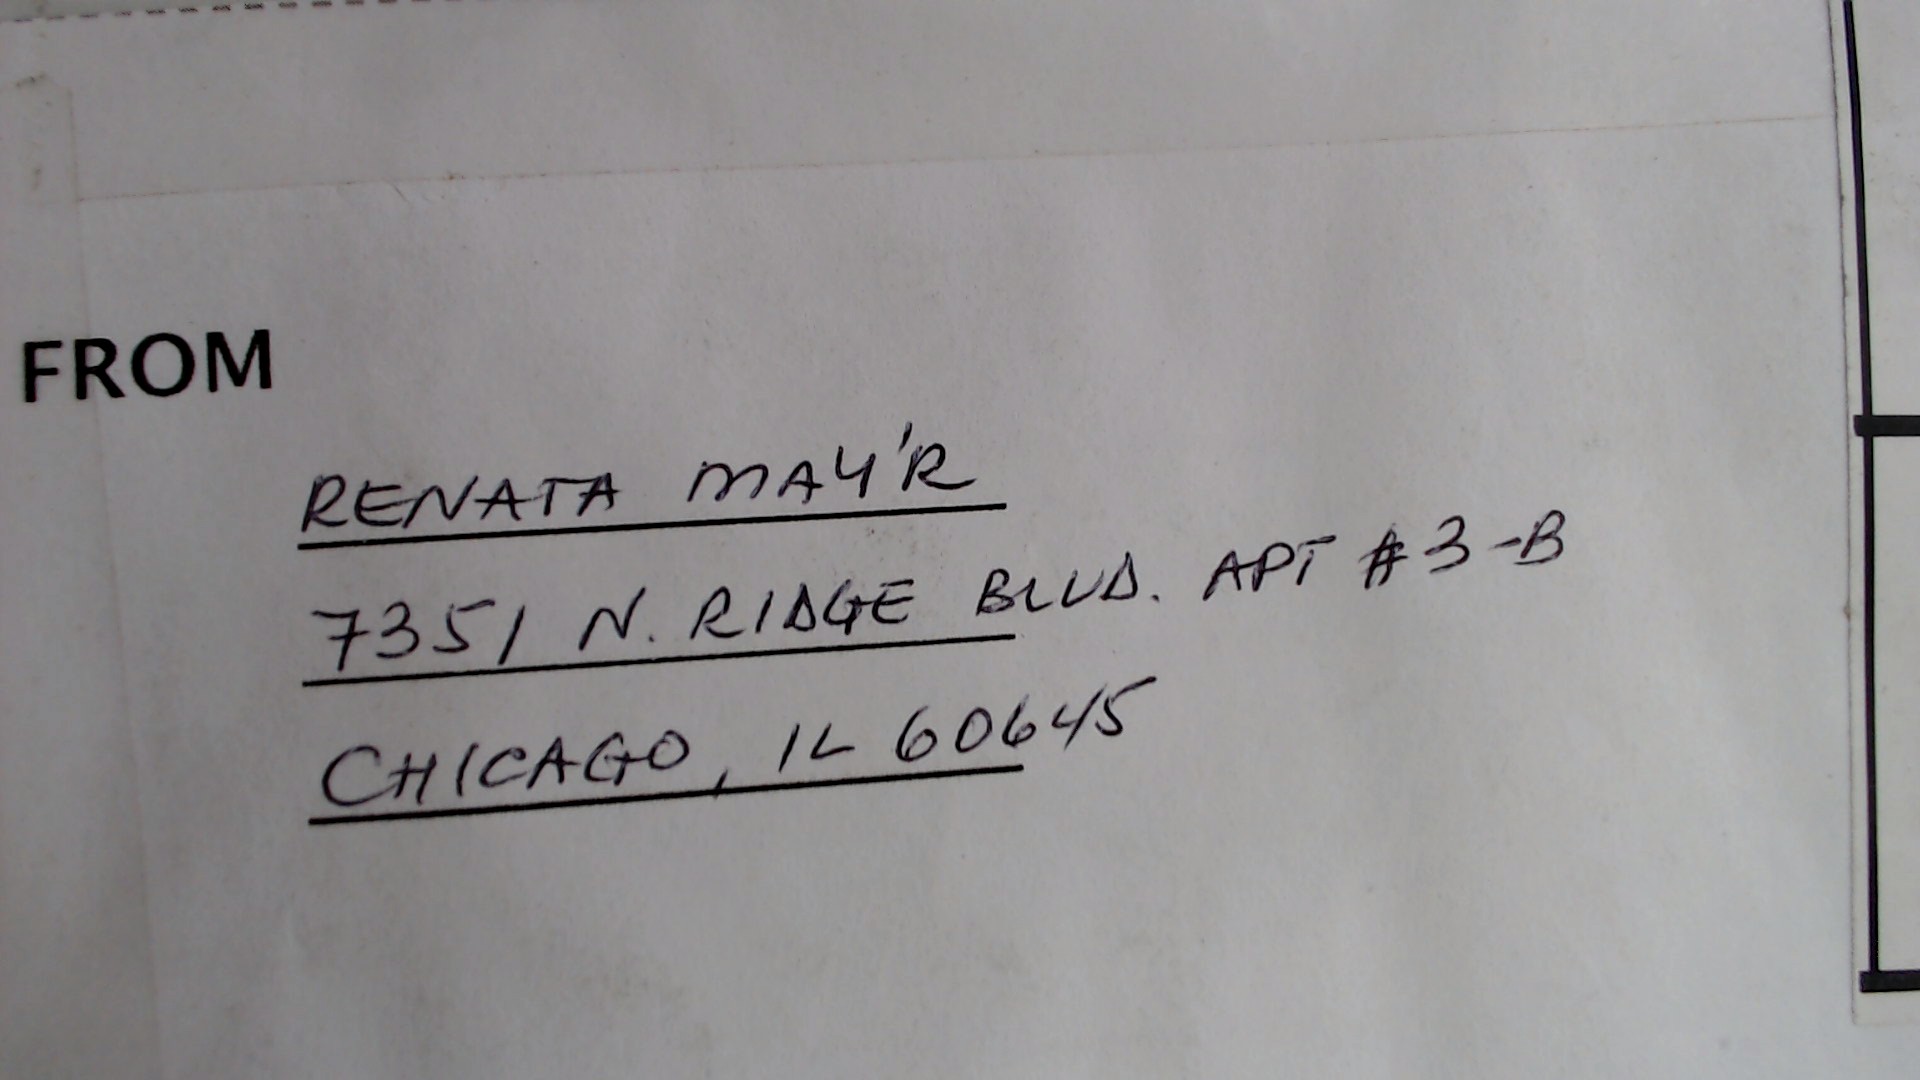 FROM
RENATA MAY'R
7351 N. RIDGE BLVD. APT #3-B
CHICAGO, IL 60645